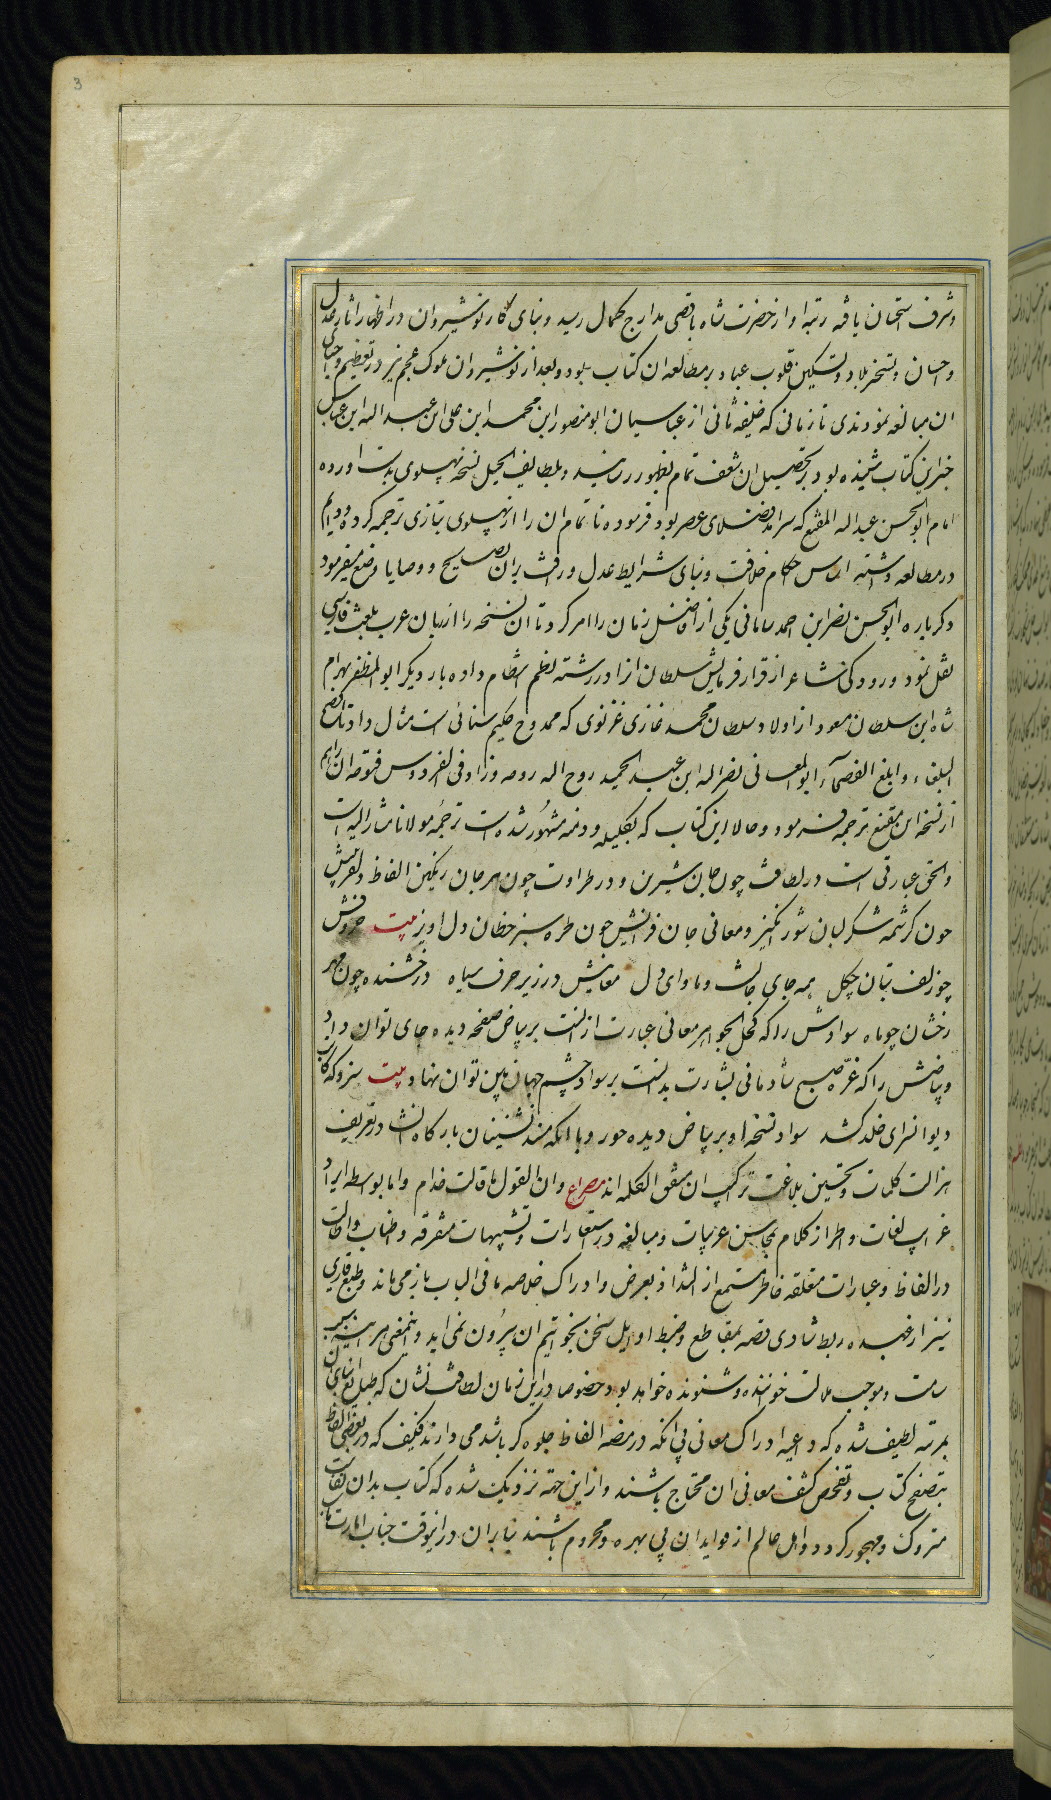 3
وشرف استحسان یافته رتبه او از حضرت شاه باقصی مدارج کمال رسید و بنای کار نوشیروان در اظهار اثار عدل
و احسان و تسخیر بلاد و تسکین قلوب عباد بر مطالعه ان کتاب بود و بعد از نوشیروان ملوک عجم نیز در تعظیم و اخفای
ان مبالغه نمودندی تا زمانی که خلیفه ثانی از عباسیان ابو منصور ابن محمد ابن علی ابن عبد اله ابن عباس
خبر این کتاب شنیده بود بر تحصیل ان شعف تمام بظهور رسانید و بلطایف الحیل نسخه پهلوی بدست اورده
امام ابو الحسن عبد اله المقنع که سرامد فضلای عصر بود فرموده تا تمام ان را از پهلوی بتازی ترجمه کرد و دایم
در مطالعه داشته اساس احکام خلافت و بنای شرایط عدل و رافت بران نصایح و وصایا وضع میفرمود
دکر باره ابو الحسن نصر ابن احمد سامانی یکی از افاضل زمان را امر کرد تا ان نسخه را از زبان عرب بلغت فارسی
نقل نمود و رودکی شاعر از قرار فرمایش سلطان انرا در رشته نظم انتظام داده بار دیکر ابو المظفر بهرام
شاه ابن سلطان مسعود از اولاد سلطان محمود غازی غزنوی که ممدوح حکیم سنائی است مثال داد تا افصح
البلغاء و ابلغ الفصحاء ابو المعانی نصر اله ابن عبد الحمید روح اله روحه وزاد فی الفردوس فتوحه ان را هم
از نسخه ابن مقنع ترجمه فرمود و حالا این کتاب که بکلیله و دمنه مشهور شده است ترجمه مولانا مشار الیه است
والحق عبارتی است در لطافت چون جان شیرین و در طراوت چون مرجان رنکین الفاظ دلفریبش
چون کرشمه شکر لبان شور انکیز و معانی جان فزایش چون طره سبز خطان دل اویز بیت حروفش
چو زلف بتان چکل همه جای جانست و ماوای دل معانیش در زیر حرف سیاه درخشنده چون مهر
رخشان چو ماه سوادش را که کحل الجواهر معانی عبارت از انست بر بیاض صفحه دیده جای توان داد
و بیاضش را که غره صبح شادمانی بشارت بدانست بر سواد چشم جهان بین توان نهاد بیت سزد که کاتب
دیوانسرای خلد کشد سواد نسخه او بر بیاض دیده حور و با انکه مسند نشینان بارکاه انشا در تعریف
جزالت کلمات و تحسین بلاغت ترکیب ان متفق الکلمه اند مصراع وان القول ما قالت حذام واما بواسطه ایراد
غرایب لغات و اطراز کلام بمحاسن عربیات و مبالغه در استعارات و تشبیهات متفرقه و اطناب و اطالت
در الفاظ و عبارات مغلقه خاطر مستمع از التذاذ بعرض و ادراک خلاصه ما فی الباب باز می ماند و طبع قاری
نیز از عهده ربط مبادی قصه بمقاطع و ضبط اوایل سخن بخواتیم ان بیرون نمی اید و اینمعنی هر اینه سبب
سامت و موجب ملالت خواننده و شنونده خواهد بود خصوصا در این زمان لطافت نشان که طبایع ابنای ان
بمرتبه لطیف شده که داعیه ادراک معانی بی انکه در منصه الفاظ جلوه کر باشد می دارند فکیف که در بعضی الفاظ
بتصفح کتاب و تفحص کشف معانی ان محتاج باشند و از این جهه نزدیک شده که کتاب بدان نفاست
متروک و مهجور کردد و اهل عالم از فواید ان بی بهره و محروم باشند بنابران در اینوقت جناب امارت ماب